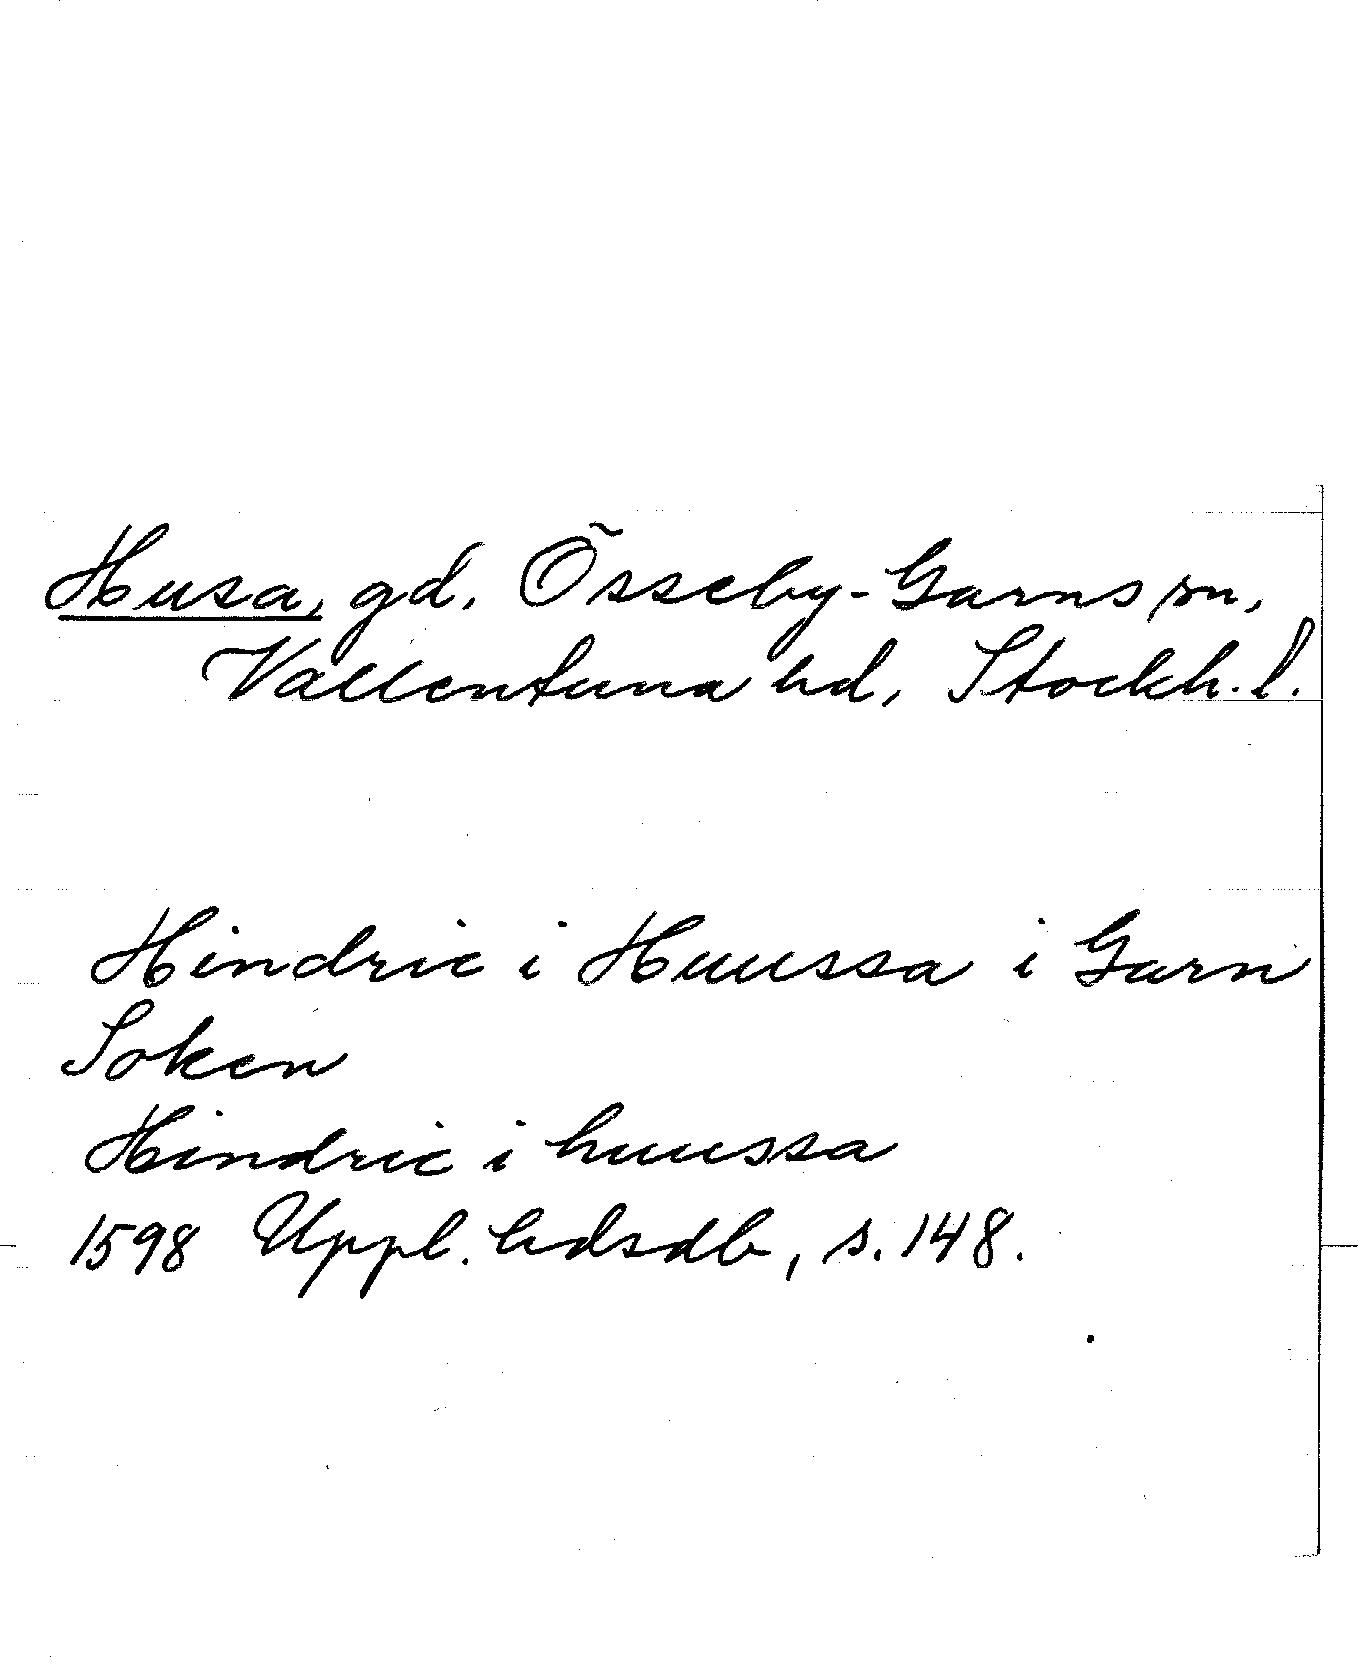 Husa, gd, Össeby-Garns sn,
Vallentuna hd, Stockh. l.
Hindric i Huussa i Garn
Soken
Hindric i huussa
1598 Uppl. hdsdb, s. 148.